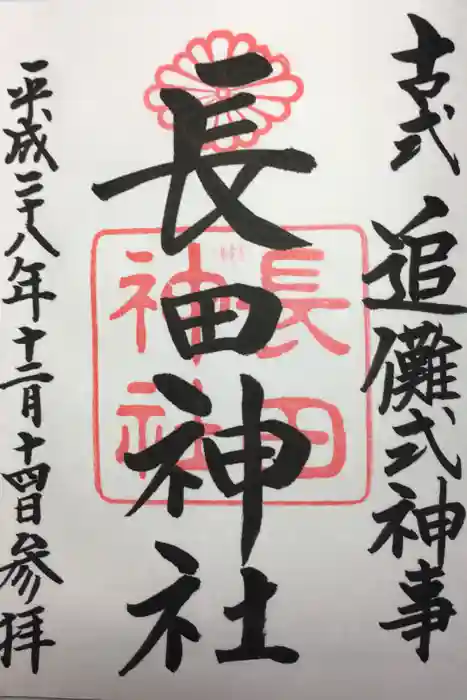 古式 追儺式神事
長田神社
長田
神社
平成二十八年十二月十四日参拝